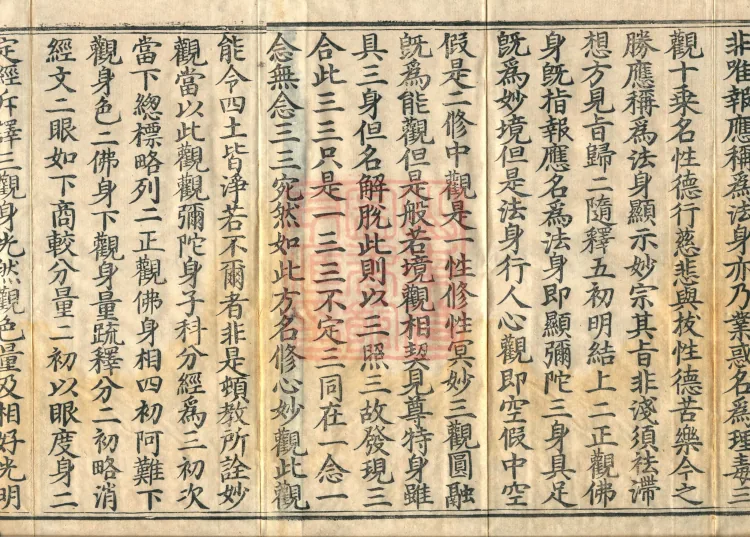 非唯報應稱爲法身亦乃業惑名爲理毒三
觀十乘名性德行慈悲與拔性德苦樂今之
勝應稱爲法身顯示妙宗其旨非淺須祛滯
想方見旨歸二隨釋五初明結上二正觀佛
身旣指報應名爲法身即顯彌陀三身具足
旣爲妙境但是法身行人心觀即空假中空
假是二修中觀是一性修性冥妙三觀圓融
旣爲能觀但是般若境觀相契見尊特身雖
具三身但名解脫此則以三照三故發現三
合此三三只是一三三不定三同在一念一
念無念三三宛然如此方名修心妙觀此觀
能令四土皆淨若不爾者非是頓教所詮妙
觀當以此觀觀彌陀身子科分經爲三初次
當下緫標略列二正觀佛身相四初阿難下
觀身色二佛身下觀身量疏釋分二初略消
經文二眼如下商較分量二初以眼度身二
定經斥釋三觀身光然觀色量及相好光明